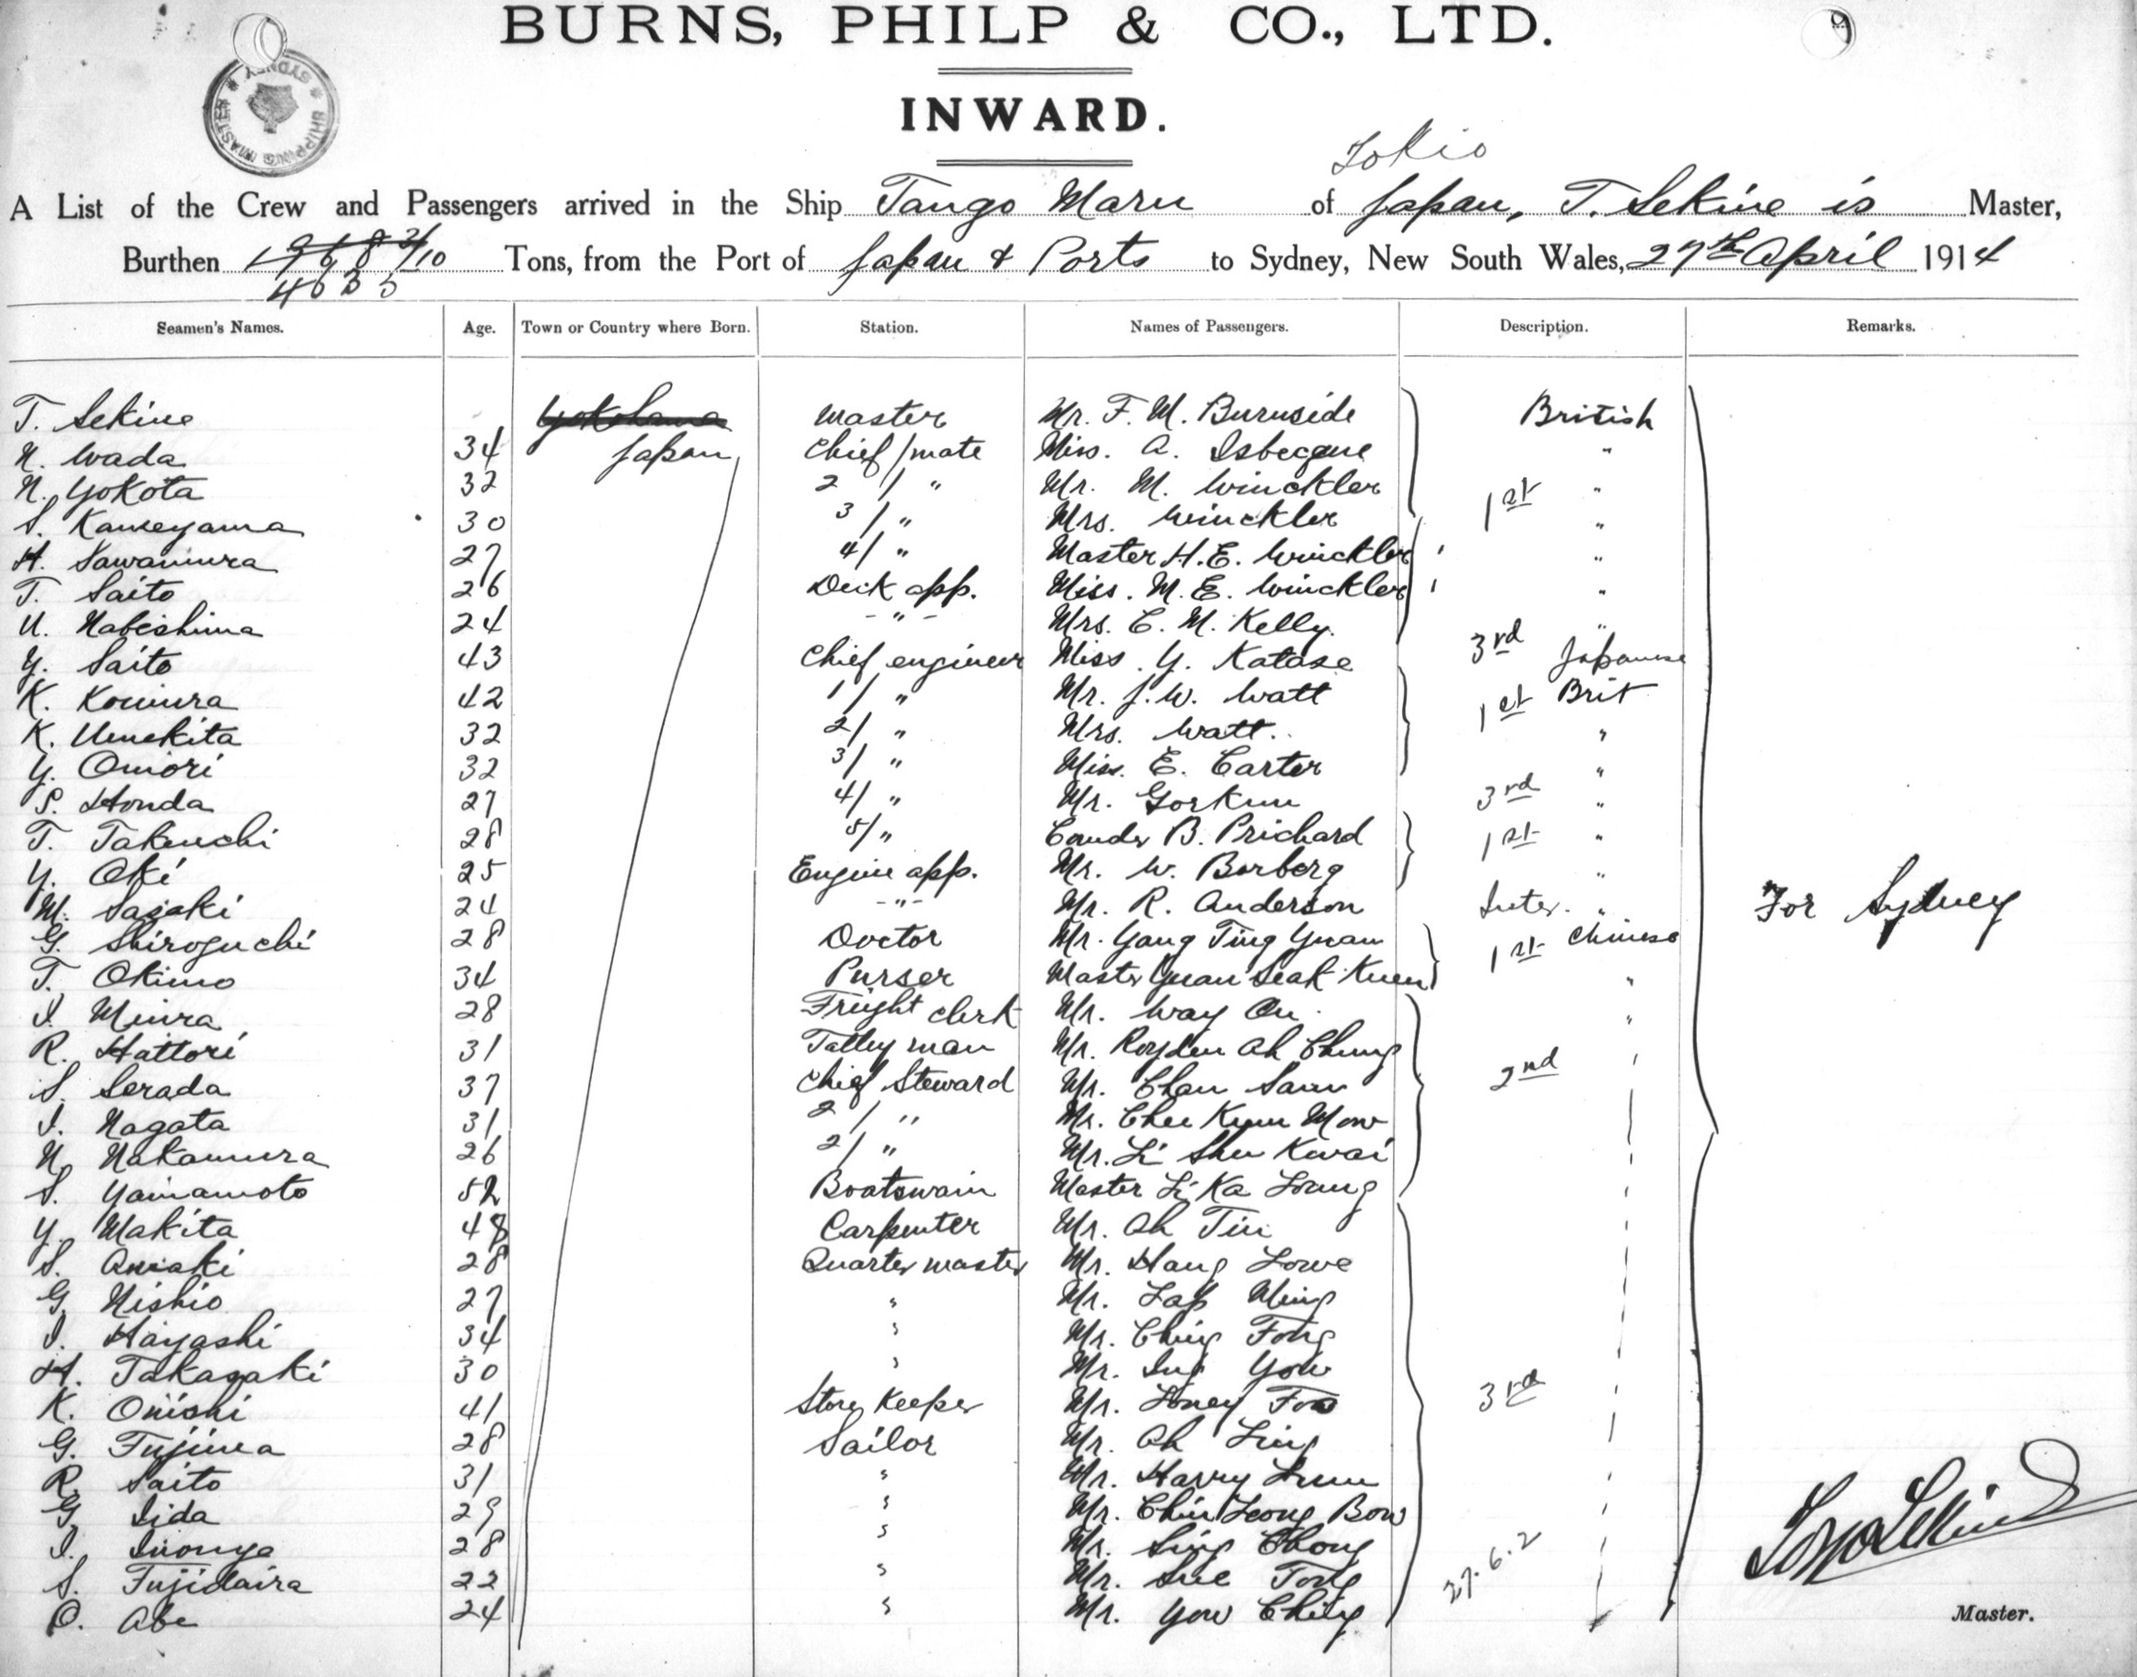 BURNS, PHILP & CO., LTD.
SHIPPING MASTER * SYDNEY *
INWARD.
Tokio
A List of the Crew and Passengers arrived in the Ship Tango Maru of Japan, T. Sekine is Master,
Burthen Tons, from the Port of Japan & Ports to Sydney, New South Wales, 27th April 1914
4635
Seamen's Names. Age. Town or Country where Born. Station. Names of Passengers. Description. Remarks.
T. Sekine Yokohama Master Mr. F. M. Burnside British
N. Wada 34 Japan Chief/mate Miss. A. Isbecque "
N. Yokota 32 2/ " Mr. M. Winckler 1st "
S. Kameyama 30 3/ " Mrs. Winckler "
H. Sawamura 27 4/ " Master H. E. Winckler "
T. Saito 26 Deck app. Miss. M. E. Winckler "
U. Nabeshima 24 - " - Mrs. C. M. Kelly. "
Y. Saito 43 Chief engineer Miss. Y. Katase 3rd Japanese
K. Komura 42 1/ " Mr. J. W. Watt 1st Brit
K. Umekita 32 2/ " Mrs. Watt. "
Y. Omori 32 3/ " Miss. E. Carter "
S. Honda 27 4/ " Mr. Gorkun 3rd "
T. Takeuchi 28 5/ " Comder B. Prichard 1st "
Y. Oki 25 Engine app. Mr. W. Borberg "
M. Sasaki 24 - " - Mr. R. Anderson Inter. "
G. Shiroguchi 28 Doctor Mr. Yang Ting Yuan 1st Chinese
T. Okimo 34 Purser Master Yuan Seak Kuen "
I. Miura 28 Freight clerk Mr. Way On "
R. Hattori 31 Talley man Mr. Royden Ah Chung
S. Serada 37 Chief Steward Mr. Chan Sam 2nd
I. Nagata 31 2/ " Mr. Chee Kum Mow
N. Nakamura 26 2/ " Mr. Li Shu Kwai
S. Yamamoto 52 Boatswain Master Li Ka Loung
Y. Makita 48 Carpenter Mr. Ah Tin
S. Amaki 28 Quarter master Mr. Hang Lowe
G. Nishio 27 " Mr. Lap Ming
I. Hayashi 34 " Mr. Ching Fong
H. Takagaki 30 " Mr. Ing Yow
K. Onishi 41 Store Keeper Mr. Loney Foo 3rd
G. Fujiwa 28 Sailor Mr. Ah Ling
R. Saito 31 " Mr. Harry Lum
G. Iida 29 " Mr. Chin Leong Bow
I. Inouye 28 " Mr. Sing Chong
S. Fujidaira 22 " Mr. Sue Tong 27.6.2
O. Abe 24 " Mr. Yow Ching
For Sydney
Master.